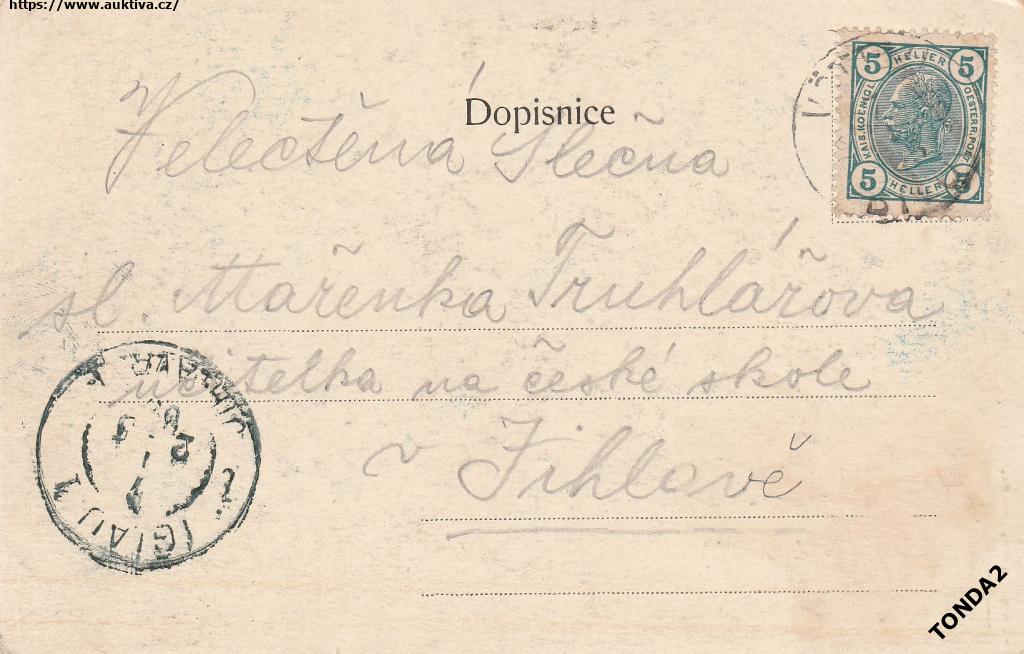 https://www.auktiva.cz/
Dopisnice
5 HELLER 5
KAIS. KOENIGL. OESTERR. POST.
5 HELLER 5
Velectěná Slečna
sl. Mařenka Truhlářova
učitelka na české skole
v Jihlavě
IGLAU 1
JIHLAVA
TONDA2